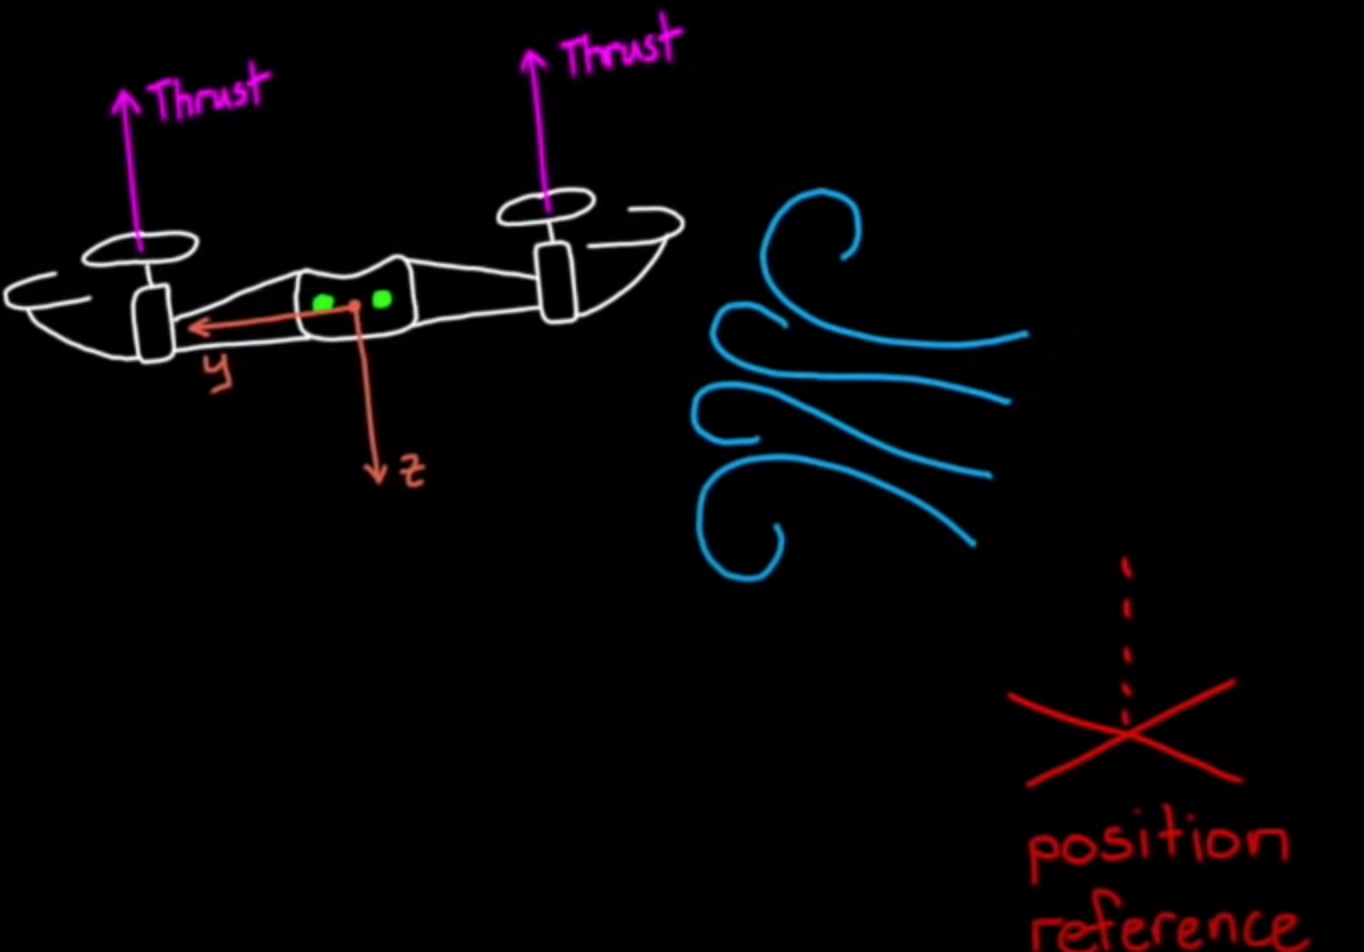 Thrust
Thrust
y
z
position
reference